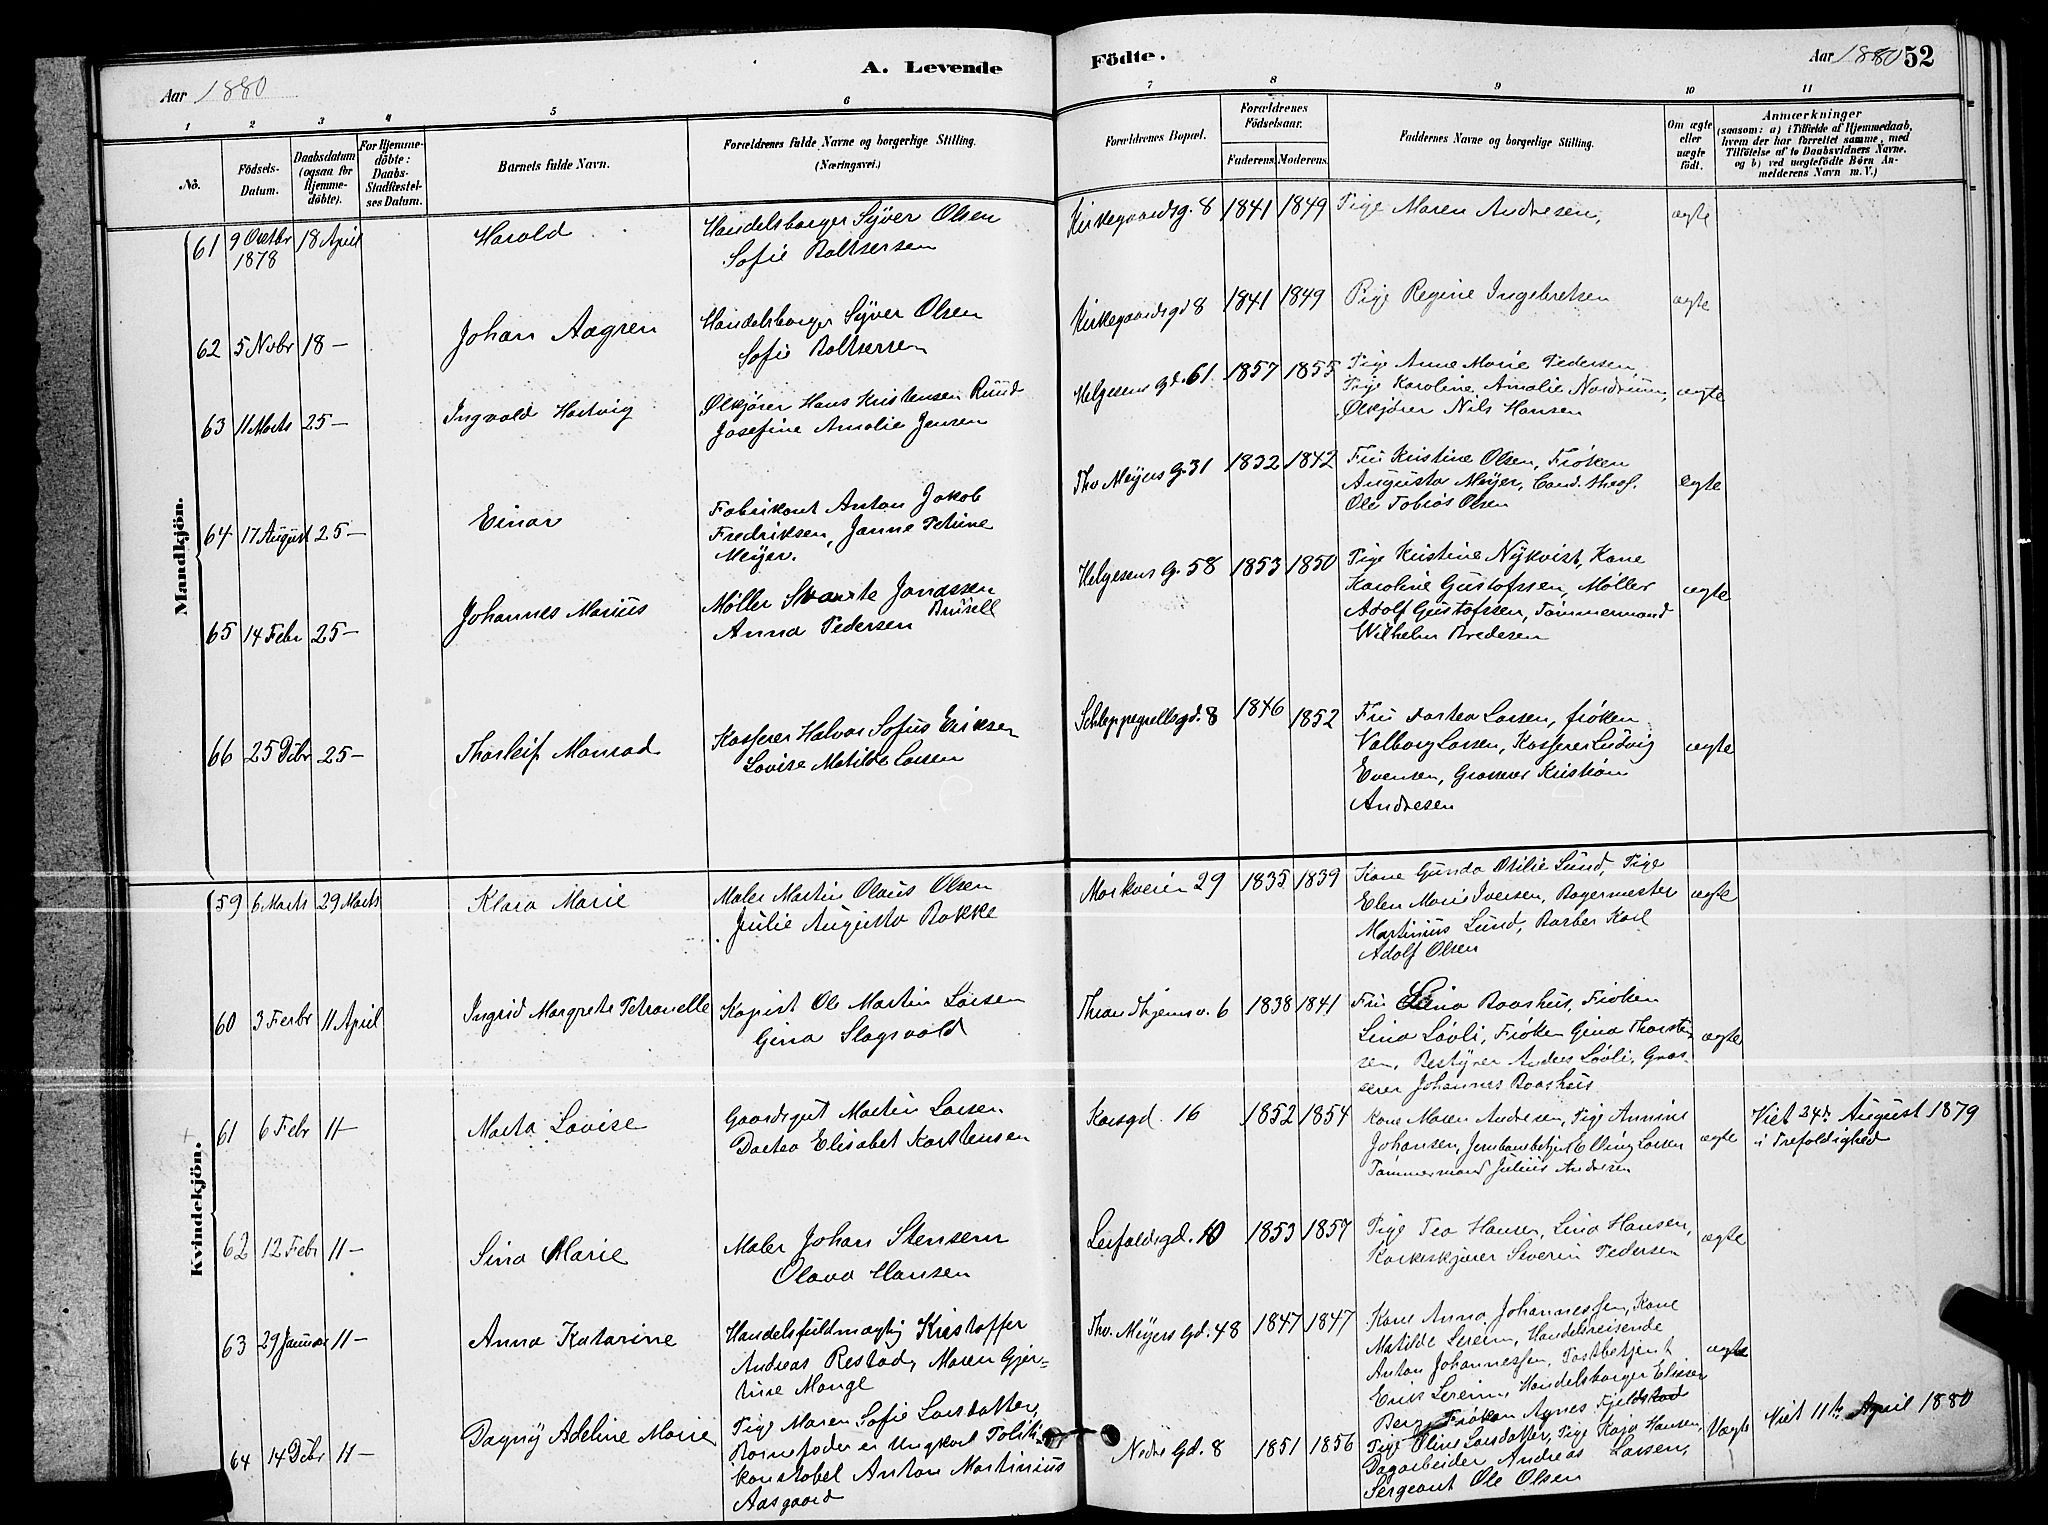 Aar 1880
A. Levende
Födte.
Aar 1880 52
1 2 3 4 5 6 7 8 9 10 11
No.
Födsels-
Datum.
Daabsdatum
(ogsaa for
Hjemme-
döbte).
For Hjemme-
döbte:
Daabs-
Stadfæstel-
ses Datum.
Barnets fulde Navn.
Forældrenes fulde Navne og borgerlige Stilling.
(Næringsvei.)
Forældrenes Bopæl.
Forældrenes
Födselsaar.
Faderens. Moderens.
Faddernes Navne og borgerlige Stilling.
Om ægte
eller
uægte
födt.
Anmærkninger
(saasom: a) i Tilfælde af Hjemmedaab,
hvem der har forrettet samme, med
Tilföielse af to Daabsvidners Navne.
og b) ved uægtefödte Børn An-
melderens Navn m. V.)
Mandkjön.
61 9 Octbr 1878 18 April Harald
Handelsborger Syver Olsen
Sofie Baltsersen
Kirkegaardsg. 8 1841 1849 Pige Maren Andresen, ægte
62 5 Nvbr 18 - Johan Aagren
Handelsborger Syver Olsen
Sofie Baltsersen
Kirkegaardsgd 8 1841 1849 Pige Regine Ingebretsen ægte
63 11 Marts 25 - Ingvald Hartvig
Ølkjører Hans Kristensen Ruud
Josefine Amalie Jensen
Helgesens Gd. 61 1857 1855 Pige Anne Marie Pedersen
Pige Karoline Amalie Nordrum, ægte
Ølkjører Nils Hansen
64 17 August 25 - Einar
Fabrikant Anton Jakob
Fredriksen, Janne Petrine
Meyer.
Thv Meyers G. 31 1832 1842 Fru Kristine Olsen, Frøken
Augusta Meyer, Cand. theol. ægte
Ole Tobias Olsen
65 14 Febr 25 - Johannes Marius
Møller Svante Jonassen
Brusell
Anna Pedersen
Helgesens G. 58 1853 1850 Pige Kristine Nykvist, Kone
Karoline Gustafssen, Møller
Adolf Gustafssen, Tømmermand ægte
Wilhelm Bredesen
66 25 Dcbr 25 - Thorleif Monrad
Kasserer Halvor Sofus Eriksen
Lovise Matilde Larsen
Schleppegrellsgd. 8 1846 1852 Fru Dortea Larsen, frøken
Valborg Larsen, Kasserer Ludvig ægte
Evensen, Grosserer Kristian
Andresen
Kvindekjön.
59 6 Marts 29 Marts Klara Marie
Maler Martin Olaus Olsen
Julie Augusta Bakke
Markveien 29 1835 1839 Kone Gunda Otilie Lund, Pige
Elen Marie Iversen, Bagermester ægte
Martinius Lund, Barber Karl
Adolf Olsen
60 3 Febr 11 April Ingrid Margrete Petronelle
Kopist Ole Martin Larsen
Gina Slagsvold
6 1838 1841 Fru Lina Baashus, Frøken
Lina Løvli, Frøken Gina Thorsten-
sen, Bestyrer Anders Løvli, Gros- ægte
serer Johannes Baashus
61 6 Febr 11 - Marta Lovise
Gaardsgut Martin Larsen
Dortea Elisabet Karstensen
Korsgd. 16 1852 1854 Kone Maren Andresen, Pige Annine
Johansen, Jernbanebetjent Elling Larsen ægte
Tømmermand Julius Andresen
Viet 24de August 1879
i Trefoldighed
62 12 Febr 11 - Sina Marie
Maler Johan Stensen
Olava Hansen
Leirfaldsgd. 10 1853 1857 Pige Tea Hansen, Lina Hansen, ægte
Severin Pedersen
63 29 Januar 11 - Anna Katarine
Handelsfuldmægtig Kristoffer
Andreas Restad, Maren Gjer-
trine Monge
Thv. Meyers Gd. 48 1847 1847 Kone Anna Johannessen, Kone
Matilde Sereim, Handelsreisende
Anton Johannessen, Postbetjent ægte
Erik Sereim, Handelsborger Eliser
Berg, Frøken Agnes Fjeldstad
64 14 Dcbr 11 - Dagny Adeline Marie
Pige Maren Sofie Larsdatter,
Barnefader er Ungkarl Politi-
konstabel Anton Martinius
Aasgaard
Nedre Gd. 8 1851 1856 Pige Oline Larsdatter, Pige Kaja Hansen, Uægte
Dagarbeider Andreas Larsen,
Sergeant Ole Olsen
Viet 11te April 1880